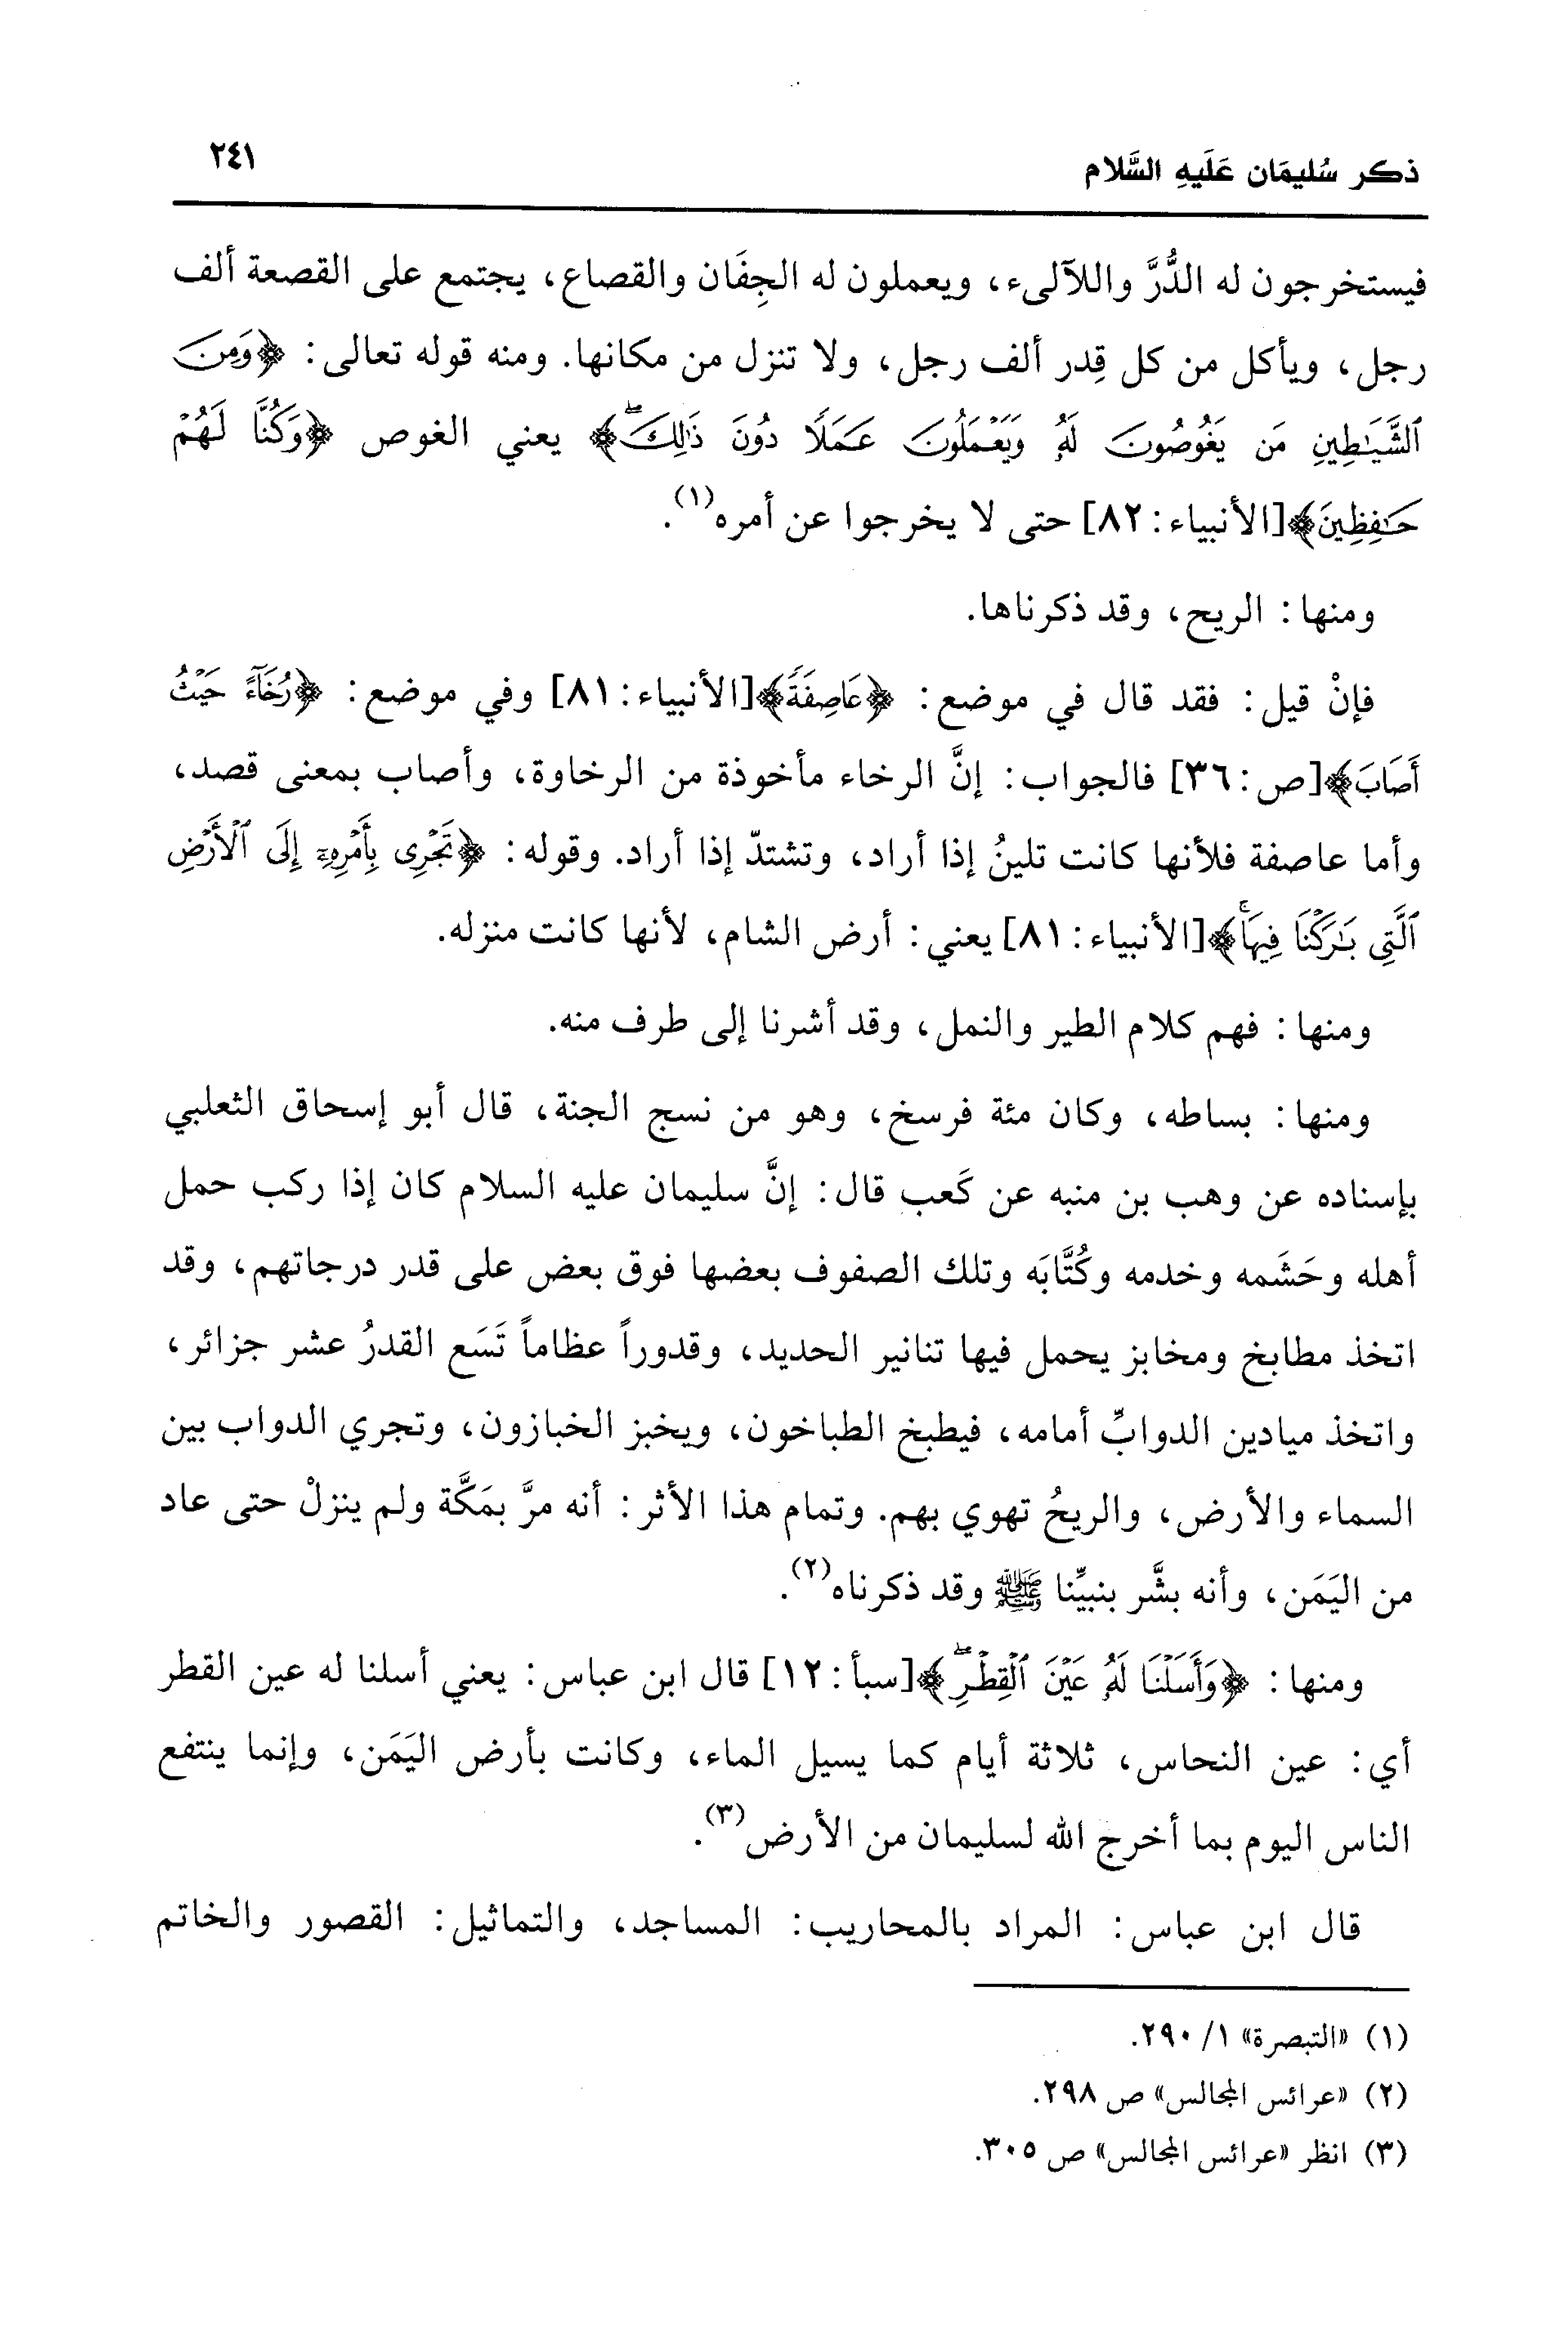 ذكر سُليمَان عَلَيهِ السَّلام
٢٤١
فيستخرجون له الدُّرَّ واللآلىء، ويعملون له الجِفَان والقصاع، يجتمع على القصعة ألف
رجل، ويأكل من كل قِدر ألف رجل، ولا تنزل من مكانها. ومنه قوله تعالى: ﴿وَمِنَ
ٱلشَّيَٰطِينِ مَن يَغُوصُونَ لَهُۥ وَيَعۡمَلُونَ عَمَلٗا دُونَ ذَٰلِكَۖ﴾ يعني الغوص ﴿وَكُنَّا لَهُمۡ
حَٰفِظِينَ﴾[الأنبياء: ٨٢] حتى لا يخرجوا عن أمره(١).
ومنها: الريح، وقد ذكرناها.
فإنْ قيل: فقد قال في موضع: ﴿عَاصِفَةٗ﴾[الأنبياء: ٨١] وفي موضع: ﴿رُخَآءً حَيۡثُ
أَصَابَ﴾[ص: ٣٦] فالجواب: إنَّ الرخاء مأخوذة من الرخاوة، وأصاب بمعنى قصد،
وأما عاصفة فلأنها كانت تلينُ إذا أراد، وتشتدّ إذا أراد. وقوله: ﴿تَجۡرِي بِأَمۡرِهِۦٓ إِلَى ٱلۡأَرۡضِ
ٱلَّتِي بَٰرَكۡنَا فِيهَاۚ﴾[الأنبياء: ٨١] يعني: أرض الشام، لأنها كانت منزله.
ومنها: فهم كلام الطير والنمل، وقد أشرنا إلى طرف منه.
ومنها: بساطه، وكان مئة فرسخ، وهو من نسج الجنة، قال أبو إسحاق الثعلبي
بإسناده عن وهب بن منبه عن كَعب قال: إنَّ سليمان عليه السلام كان إذا ركب حمل
أهله وحَشَمه وخدمه وكُتَّابَه وتلك الصفوف بعضها فوق بعض على قدر درجاتهم، وقد
اتخذ مطابخ ومخابز يحمل فيها تنانير الحديد، وقدوراً عظاماً تَسَع القدرُ عشر جزائر،
واتخذ ميادين الدوابِّ أمامه، فيطبخ الطباخون، ويخبز الخبازون، وتجري الدواب بين
السماء والأرض، والريحُ تهوي بهم. وتمام هذا الأثر: أنه مرَّ بمَكَّة ولم ينزلْ حتى عاد
من اليَمَن، وأنه بشَّر بنبيِّنا ﷺ وقد ذكرناه(٢).
ومنها: ﴿وَأَسَلۡنَا لَهُۥ عَيۡنَ ٱلۡقِطۡرِۖ﴾[سبأ: ١٢] قال ابن عباس: يعني أسلنا له عين القطر
أي: عين النحاس، ثلاثة أيام كما يسيل الماء، وكانت بأرض اليَمَن، وإنما ينتفع
الناس اليوم بما أخرج الله لسليمان من الأرض(٣).
قال ابن عباس: المراد بالمحاريب: المساجد، والتماثيل: القصور والخاتم
(١) «التبصرة» ١/ ٢٩٠.
(٢) «عرائس المجالس» ص ٢٩٨.
(٣) انظر «عرائس المجالس» ص ٣٠٥.